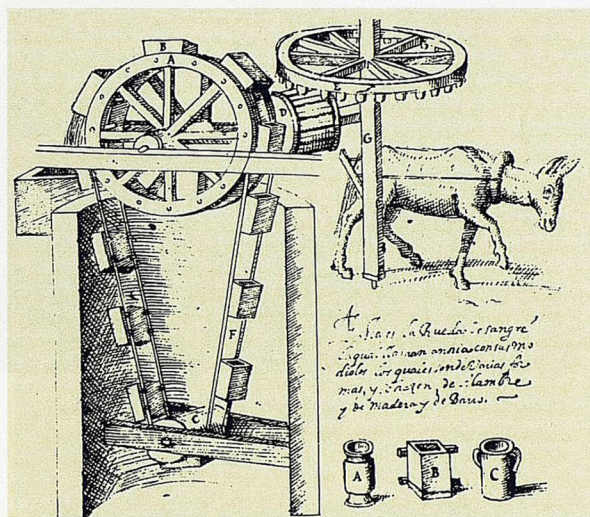 B
A
D
E
G
F
C
Esta es la Rueda de sangre
la qual llaman annia con sus mo
diolos los quales son de Varias fo
mas, y hazen de Alambre
y de Madera y de Barro.
A B C